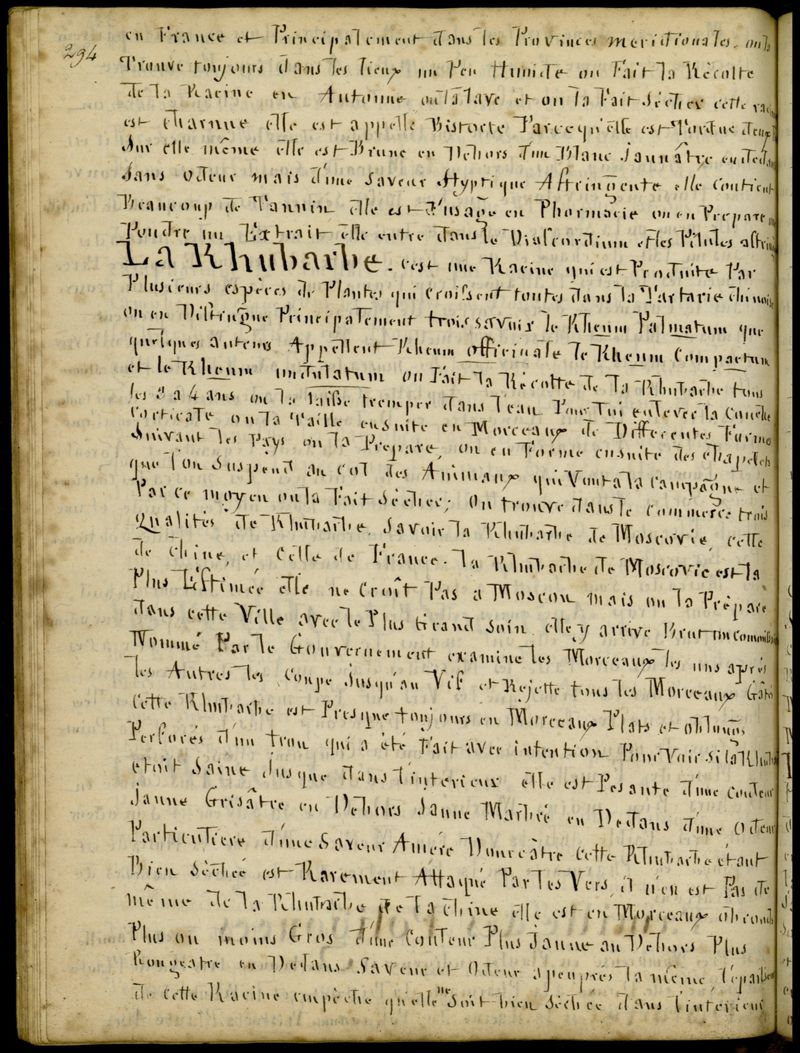 294
en France et Principalement dans les Provinces meridionales. on la
Trouve toujours dans les lieux un Peu Humide on Fait la Récolte
de la Racine en Automne on la lave et on la Fait Sécher cette racine
est charnue elle est appellé Bistorte Parcequ'elle est Tordue deux F
Sur elle même elle est Brune en Dehors d'un Blanc Jaunâtre en dedans
sans odeur mais d'une saveur styptique Astringente elle contient
Beaucoup de Tannin elle est d'usage en Pharmacie on en Prepare
Poudre un Extrait elle entre dans le Diascordium et les Pilules astrin
La Rhubarbe. c'est une Racine qui est Produite Par
Plusieurs espèces de Plantes qui croissent toutes dans la Tartarie chinoise
on en Distingue Principalement trois savoir le Rheum Palmatum que
quelques auteurs Appellent Rheum officinale le Rheum Compactum
et le Rheum undulatum on Fait la Récolte de la Rhubarbe tous
les 3 a 4 ans on la laisse tremper dans l'eau Pour lui enlever la Couche
Corticale on la Taille ensuite en Morceaux de Differentes Forme
Suivant les Pays on la Prepare, on en Forme ensuite des chapelets
que l'on Suspend au col des Animaux qui Vont a la Campagne et
Par ce moyen on la Fait Sécher; on trouve dans le Commerce trois
Qualités de Rhubarbe, Savoir la Rhubarbe de Moscovie, celle
de chine, et Celle de France. la Rhubarbe de Moscovie est la
Plus Estimée elle ne Croît Pas a Moscou mais on la Prépare
dans cette Ville avec le Plus Grand soin. elle y arrive Brut un Commissaire
Nommé Par le Gouvernement examine les Morceaux les uns après
les Autres les Coupe Jusqu'au Vif et Rejette tous les Morceaux Gâtés
Cette Rhubarbe est Presque toujours en Morceaux Plats et oblongs
Perforés d'un trou qui a été Fait avec intention Pour Voir si la Rhubarbe
etoit Saine Jusque dans l'interieur elle est Pesante d'une Couleur
Jaune Grisâtre en Dehors Jaune Marbré en Dedans d'une Odeur
Particuliere d'une Saveur Amère Douceâtre cette Rhubarbe étant
Bien Séchée est Rarement Attaqué Par les Vers, il n'en est Pas de
même de la Rhubarbe de la chine elle est en Morceaux ob rond
Plus ou moins Gros d'une Couleur Plus Jaune au Dehors Plus
Rougeatre en Dedans Saveur et Odeur apeuprès la même, l'épaisseur
de cette Racine empêche qu'elle ne Soit bien Séchée dans l'interieur